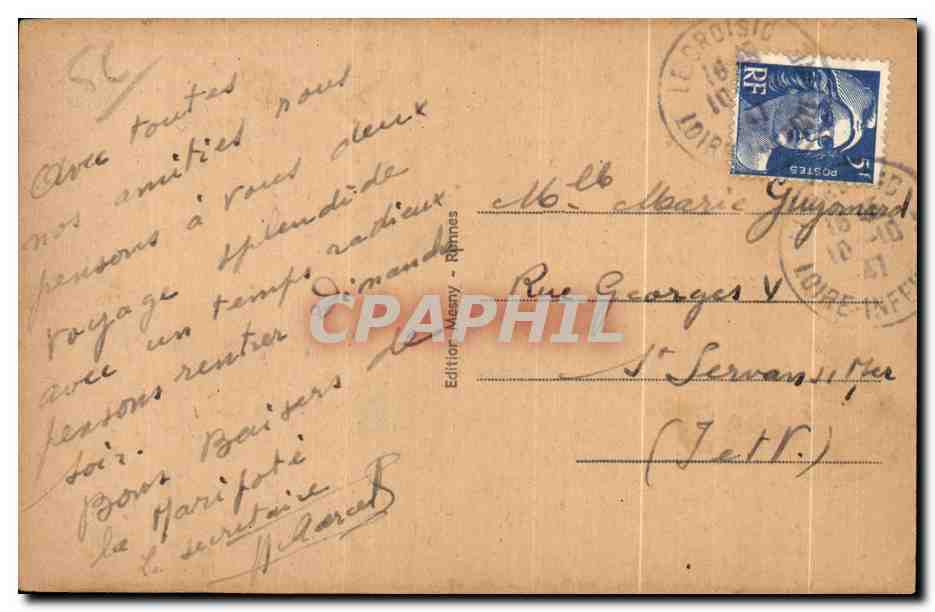 56
Avec toutes
nos amitiés nous
pensons à vous deux
voyage splendide
avec un temps radieux
pensons rentrer Dimanche
soir.
Bons Baisers de
la
le secretaire
Marcel
Edition Mesny - Rennes
LE CROISIC
16
10
LOIRE
RF
POSTES
5F
Mlle Marie Guyomard
Rue Georges V
St Servan s/ Mer
(I et V.)
16
10 -10
47
LOIRE-INFE
CPAPHIL